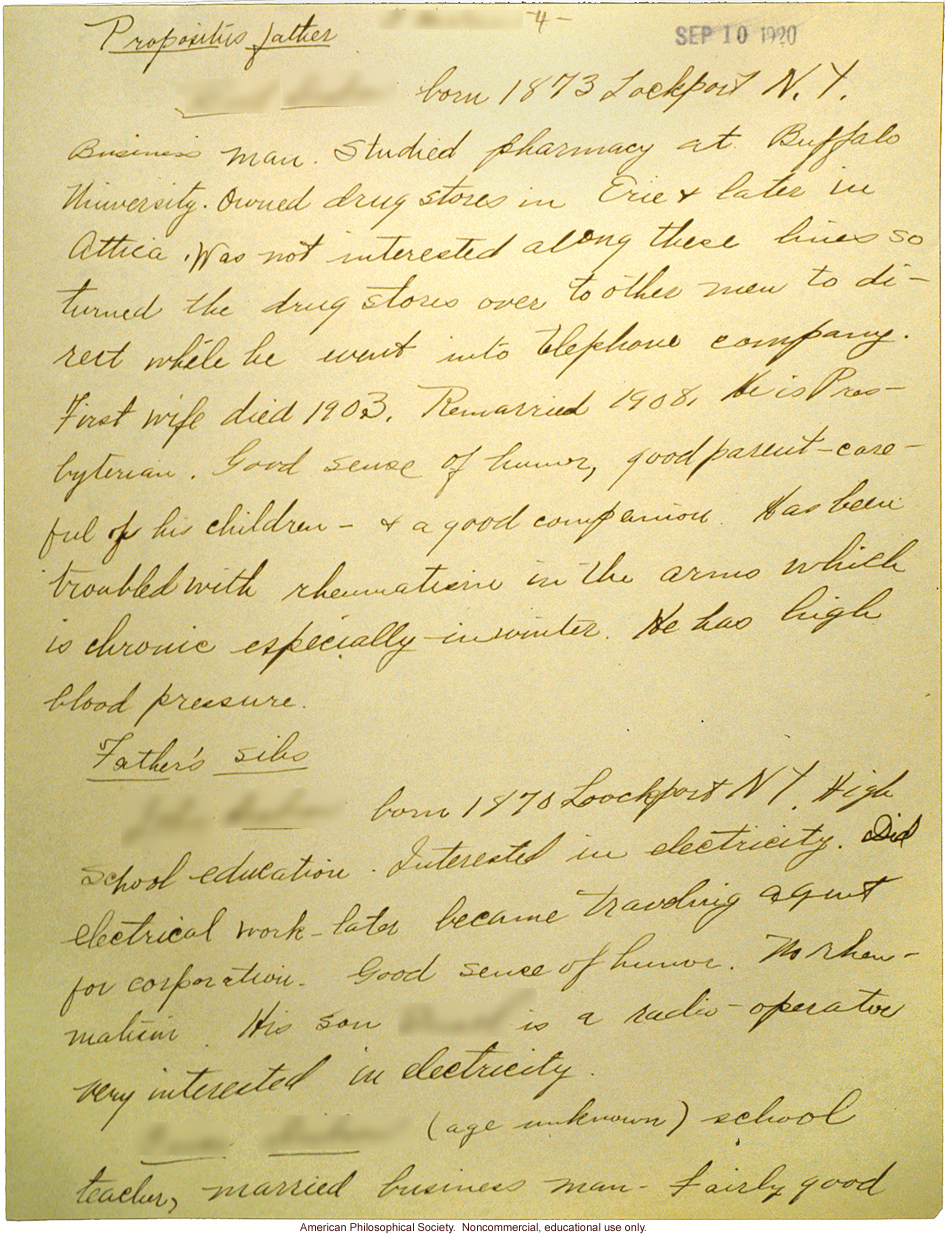 -4-
Propositus father
SEP 10 1920
born 1873 Lockport N.Y.
Business man. Studied pharmacy at Buffalo
University. Owned drug stores in Erie & later in
Attica. Was not interested along these lines so
turned the drug stores over to other men to di-
rect while he went into telephone company.
First wife died 1903. Remarried 1908. He is Pres-
byterian. Good sense of humor, good parent - care-
ful of his children - & a good companion. Has been
troubled with rheumatism in the arms which
is chronic especially in winter. He has high
blood pressure.
Father's sibs
born 1870 Loockport N Y. High
school education. Interested in electricity. Did
electrical work - later became traveling agent
for corporation. Good sense of humor. No rheu-
matism. His son is a radio-operator
very interested in electricity.
(age unknown) school
teacher, married business man - Fairly good
American Philosophical Society. Noncommercial, educational use only.